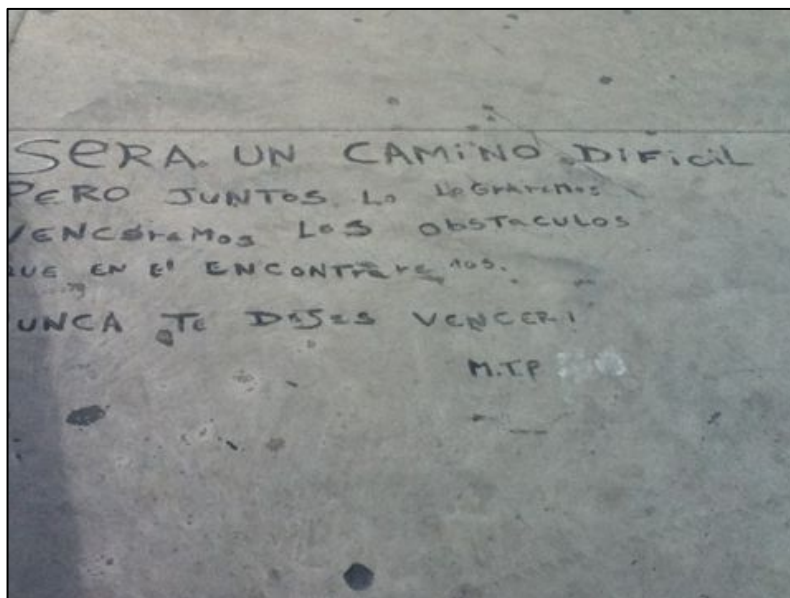 SERA UN CAMINO DIFICIL
PERO JUNTOS LO LOGRAREMOS
VENCEREMOS LOS OBSTACULOS
QUE EN El ENCONTRAREMOS.
UNCA TE DEJES VENCER!
M.T.P